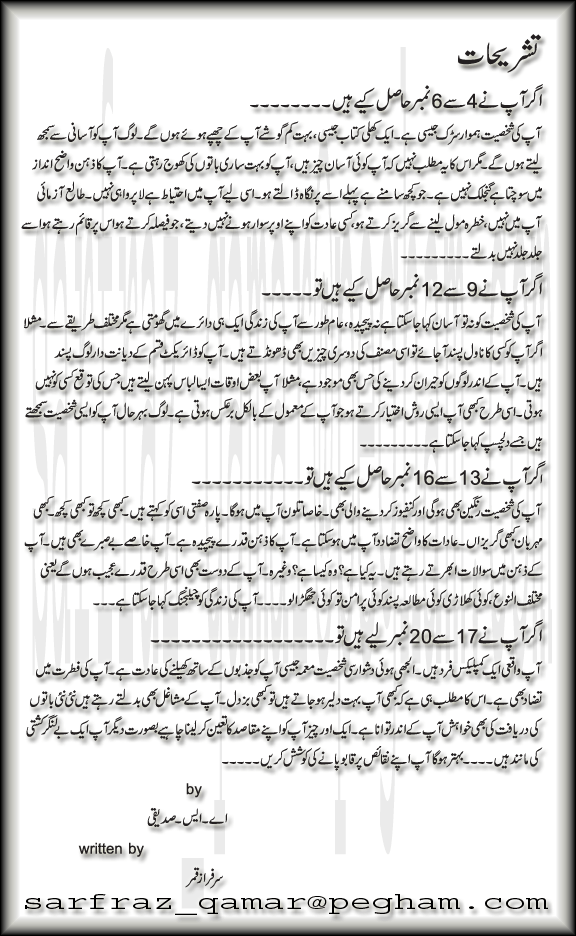 تشریحات
اگر آپ نے 4 سے 6 نمبر حاصل کیے ہیں۔۔۔۔۔۔۔۔
آپ کی شخصیت ہموار سڑک جیسی ہے۔ ایک کھلی کتاب جیسی، بہت کم گوشے آپ کے چھپے ہوئے ہوں گے۔ لوگ آپ کو آسانی سے سمجھ
لیتے ہوں گے۔ مگر اس کا یہ مطلب نہیں کہ آپ کوئی آسان چیز ہیں، آپ کو بہت ساری باتوں کی کھوج رہتی ہے۔ آپ کا ذہن واضح انداز
میں سوچتا ہے گنجلک نہیں ہے۔ جو کچھ سامنے ہے پہلے اسے پر نگاہ ڈالتے ہو۔ اسی لیے آپ میں احتیاط ہے لا پرواہی نہیں۔ طالع آزمائی
آپ میں نہیں، خطرہ مول لینے سے گریز کرتے ہو، کسی عادت کو اپنے اوپر سوار ہونے نہیں دیتے، جو فیصلہ کرتے ہو اس پر قائم رہتے ہو اسے
جلد جلد نہیں بدلتے۔۔۔۔۔۔۔۔۔
اگر آپ نے 9 سے 12 نمبر حاصل کیے ہیں تو۔۔۔۔۔
آپ کی شخصیت کو نہ تو آسان کہا جا سکتا ہے نہ پیچیدہ، عام طور سے آپ کی زندگی ایک ہی دائرے میں گھومتی ہے مگر مختلف طریقے سے۔ مثلا
اگر آپ کو کسی کا ناول پسند آ جائے تو اسی مصنف کی دوسری چیزیں بھی ڈھونڈتے ہیں۔ آپ کو ڈائریکٹ قسم کے دیانت دار لوگ پسند
ہیں۔ آپ کے اندر لوگوں کو حیران کر دینے کی حس بھی موجود ہے، مثلا آپ بعض اوقات ایسا لباس پہن لیتے ہیں جس کی توقع کسی کو نہیں
ہوتی۔ اسی طرح کبھی آپ ایسی روش اختیار کرتے ہو جو آپ کے معمول کے بالکل برعکس ہوتی ہے۔ لوگ بہر حال آپ کو ایسی شخصیت سمجھتے
ہیں جسے دلچسپ کہا جا سکتا ہے۔۔۔۔۔۔۔۔۔
اگر آپ نے 13 سے 16 نمبر حاصل کیے ہیں تو۔۔۔۔۔۔۔۔۔۔۔
آپ کی شخصیت رنگین بھی ہوگی اور کنفیوز کر دینے والی بھی۔ خاصا تلون آپ میں ہوگا۔ پارہ صفتی اسی کو کہتے ہیں۔ کبھی کچھ تو کبھی کچھ۔ کبھی
مہربان کبھی گریزاں۔ عادات کا واضح تضاد و آپ میں ہو سکتا ہے۔ آپ کا ذہن قدرے پیچیدہ ہے۔ آپ خاصے بے صبرے بھی ہیں۔ آپ
کے ذہن میں سوالات ابھرتے رہتے ہیں۔ یہ کیا ہے؟ وہ کیسا ہے؟ وغیرہ۔ آپ کے دوست بھی اسی طرح قدرے عجیب ہوں گے یعنی
مختلف النوع، کوئی کھلاڑی کوئی مطالعہ پسند کوئی پر امن تو کوئی جھگڑالو۔۔۔۔ آپ کی زندگی کو چیلنجنگ کہا جا سکتا ہے۔۔۔
اگر آپ نے 17 سے 20 نمبر لیے ہیں تو۔۔۔۔۔۔۔۔۔۔۔۔۔۔۔۔۔
آپ واقعی ایک کمپلیکس فرد ہیں۔ الجھی ہوئی دشوار سی شخصیت معمہ جیسی آپ کو جذبوں کے ساتھ کھیلنے کی عادت ہے۔ آپ کی فطرت میں
تضاد بھی ہے۔ اس کا مطلب ہی ہے کہ کبھی آپ بہت دلیر ہو جاتے ہیں تو کبھی بزدل۔ آپ کے مشاغل بھی بدلتے رہتے ہیں نئی نئی باتوں
کی دریافت کی بھی خواہش آپ کے اندر توانا ہے۔ ایک اور چیز آپ کو اپنے مقاصد کا تعین کر لینا چاہیے بصورت دیگر آپ ایک بے لنگر کشتی
کی مانند ہیں۔۔۔۔ بہتر ہوگا آپ اپنے نقائص پر قابو پانے کی کوشش کریں۔۔۔۔۔
by
اے۔ ایس۔ صدیقی
written by
سرفراز قمر
sarfraz_qamar@pegham.com